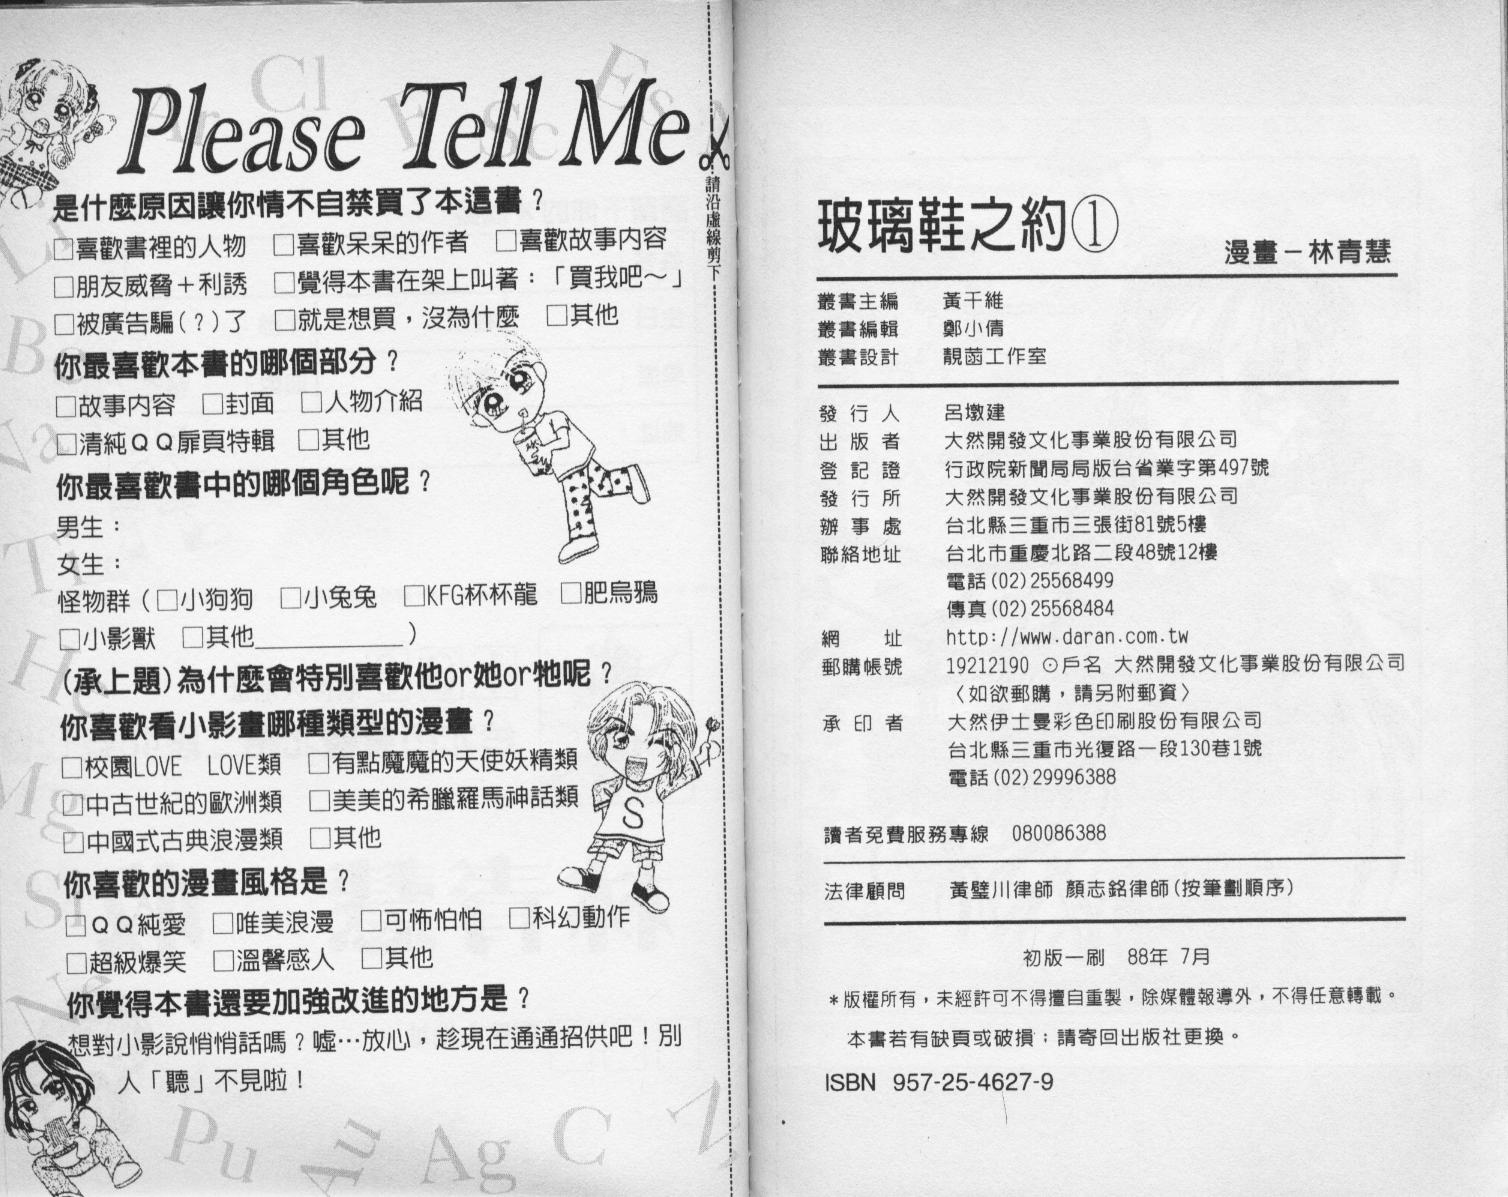 Please Tell Me
是什麼原因讓你情不自禁買了本這書？
□喜歡書裡的人物 □喜歡呆呆的作者 □喜歡故事內容
□朋友威脅＋利誘 □覺得本書在架上叫著：「買我吧～」
□被廣告騙(？)了 □就是想買，沒為什麼 □其他
你最喜歡本書的哪個部分？
□故事內容 □封面 □人物介紹
□清純ＱＱ扉頁特輯 □其他
你最喜歡書中的哪個角色呢？
男生：
女生：
怪物群（□小狗狗 □小兔兔 □KFG杯杯龍 □肥烏鴉
□小影獸 □其他___________）
(承上題)為什麼會特別喜歡他or她or牠呢？
你喜歡看小影畫哪種類型的漫畫？
□校園LOVE LOVE類 □有點魔魔的天使妖精類
□中古世紀的歐洲類 □美美的希臘羅馬神話類
□中國式古典浪漫類 □其他
你喜歡的漫畫風格是？
□ＱＱ純愛 □唯美浪漫 □可怖怕怕 □科幻動作
□超級爆笑 □溫馨感人 □其他
你覺得本書還要加強改進的地方是？
想對小影說悄悄話嗎？噓…放心，趁現在通通招供吧！別
人「聽」不見啦！
請沿虛線剪下
S
Ar
Cl
F
Sc
Es
Li
Be
Na
Ti
Hg
Mg
Si
Ne
Pu
Au
Ag
C
玻璃鞋之約①
漫畫－林青慧
叢書主編 黃千維
叢書編輯 鄭小倩
叢書設計 靚菡工作室
發行人 呂墩建
出版者 大然開發文化事業股份有限公司
登記證 行政院新聞局局版台省業字第497號
發行所 大然開發文化事業股份有限公司
辦事處 台北縣三重市三張街81號5樓
聯絡地址 台北市重慶北路二段48號12樓
電話(02)25568499
傳真(02)25568484
網址 http://www.daran.com.tw
郵購帳號 19212190 ⊙戶名 大然開發文化事業股份有限公司
〈如欲郵購，請另附郵資〉
承印者 大然伊士曼彩色印刷股份有限公司
台北縣三重市光復路一段130巷1號
電話(02)29996388
讀者免費服務專線 080086388
法律顧問 黃璧川律師 顏志銘律師(按筆劃順序)
初版一刷 88年 7月
＊版權所有，未經許可不得擅自重製，除媒體報導外，不得任意轉載。
本書若有缺頁或破損：請寄回出版社更換。
ISBN 957-25-4627-9